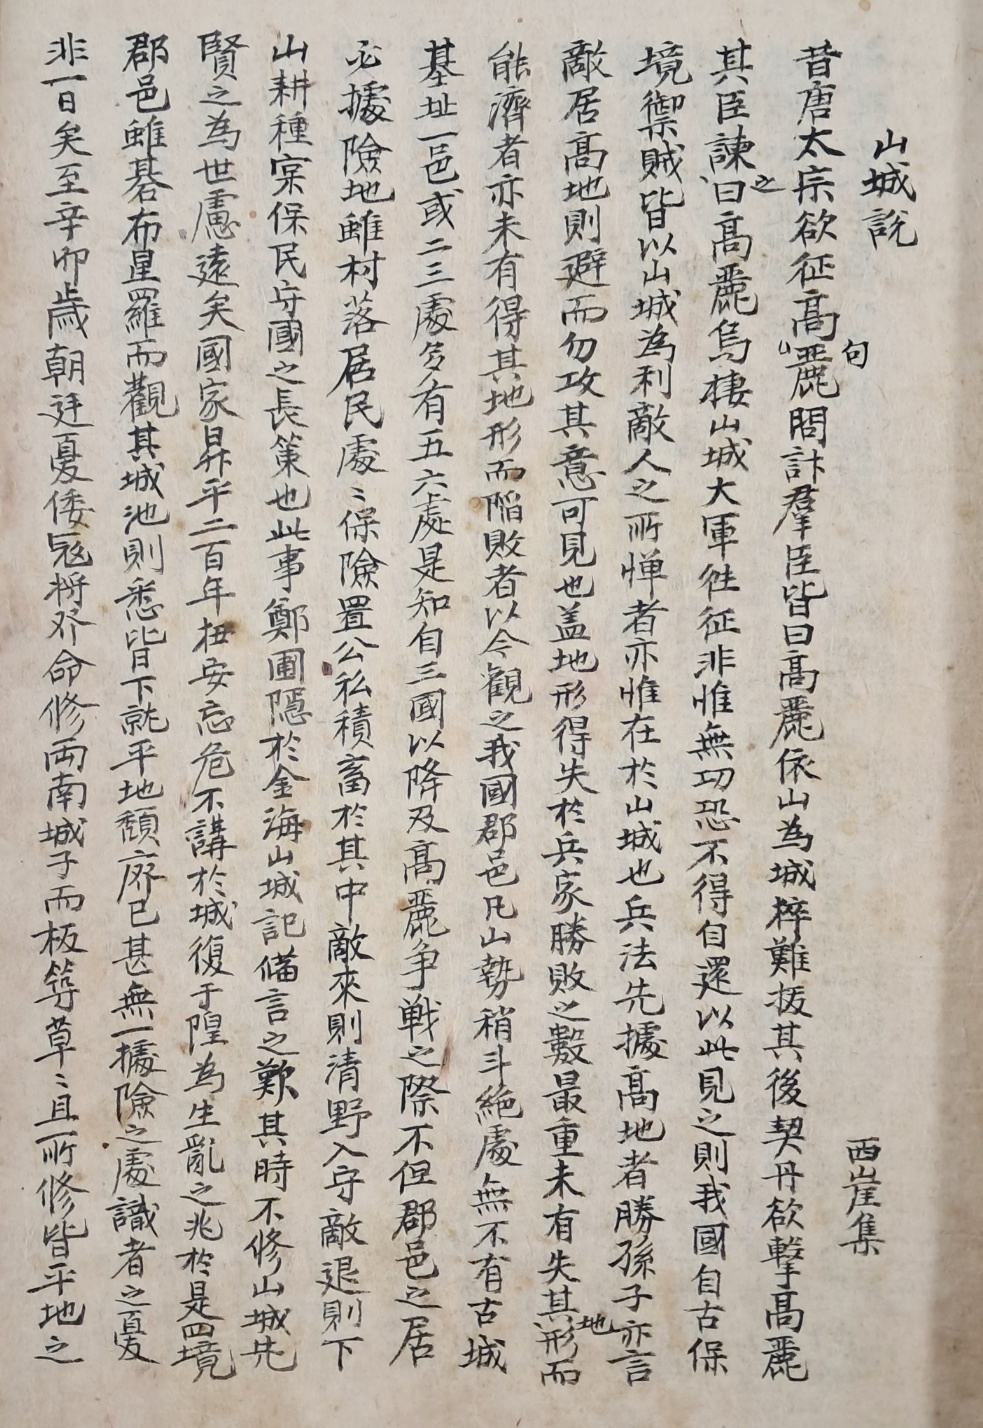 山城說
西崖集
昔唐太宗欲征高句麗問計羣臣皆曰高麗依山為城猝難拔其後契丹欲擊高麗
其臣諫之曰高麗鳥棲山城大軍徃征非惟無功恐不得自還以此見之則我國自古保
境禦賊皆以山城為利敵人之所憚者亦惟在於山城也兵法先據高地者勝孫子亦言
敵居高地則避而勿攻其意可見也盖地形得失於兵家勝敗之數最重未有失其地形而
能濟者亦未有得其地形而陷敗者以今觀之我國郡邑凡山勢稍斗絕處無不有古城
基址一邑或二三處多有五六處是知自三國以降及高麗争戰之際不但郡邑之居
必據險地雖村落居民處〻保險置公私積畜於其中敵來則清野入守敵退則下
山耕種寔保民守國之長策也此事鄭圃隱於金海山城記備言之歎其時不修山城先
賢之為世慮遠矣國家昇平二百年狃安忘危不講於城復于隍為生亂之兆於是四境
郡邑雖碁布星羅而觀其城池則悉皆下就平地頹廢已甚無一據險之處識者之憂
非一日矣至辛卯歲朝廷憂倭寇將發命修两南城子而板築草〻且所修皆平地之